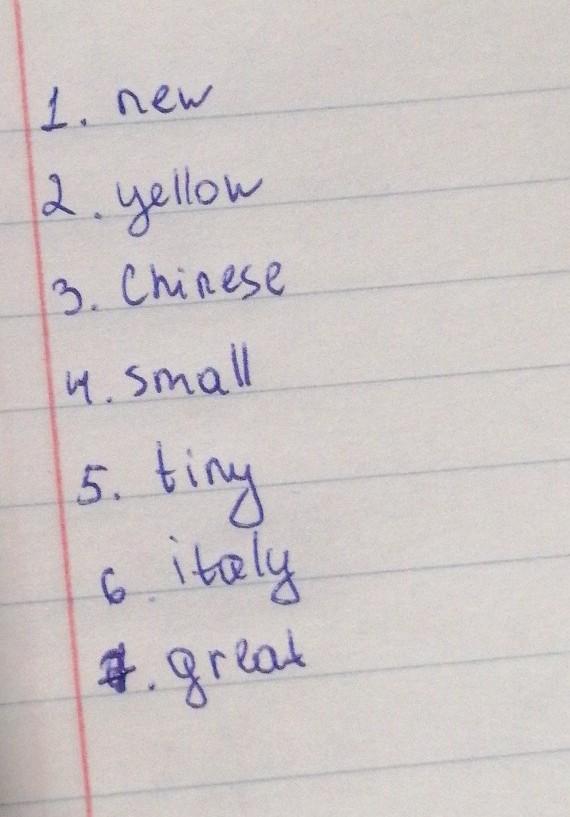 1. new
2. yellow
3. Chinese
4. small
5. tiny
6. italy
7. great